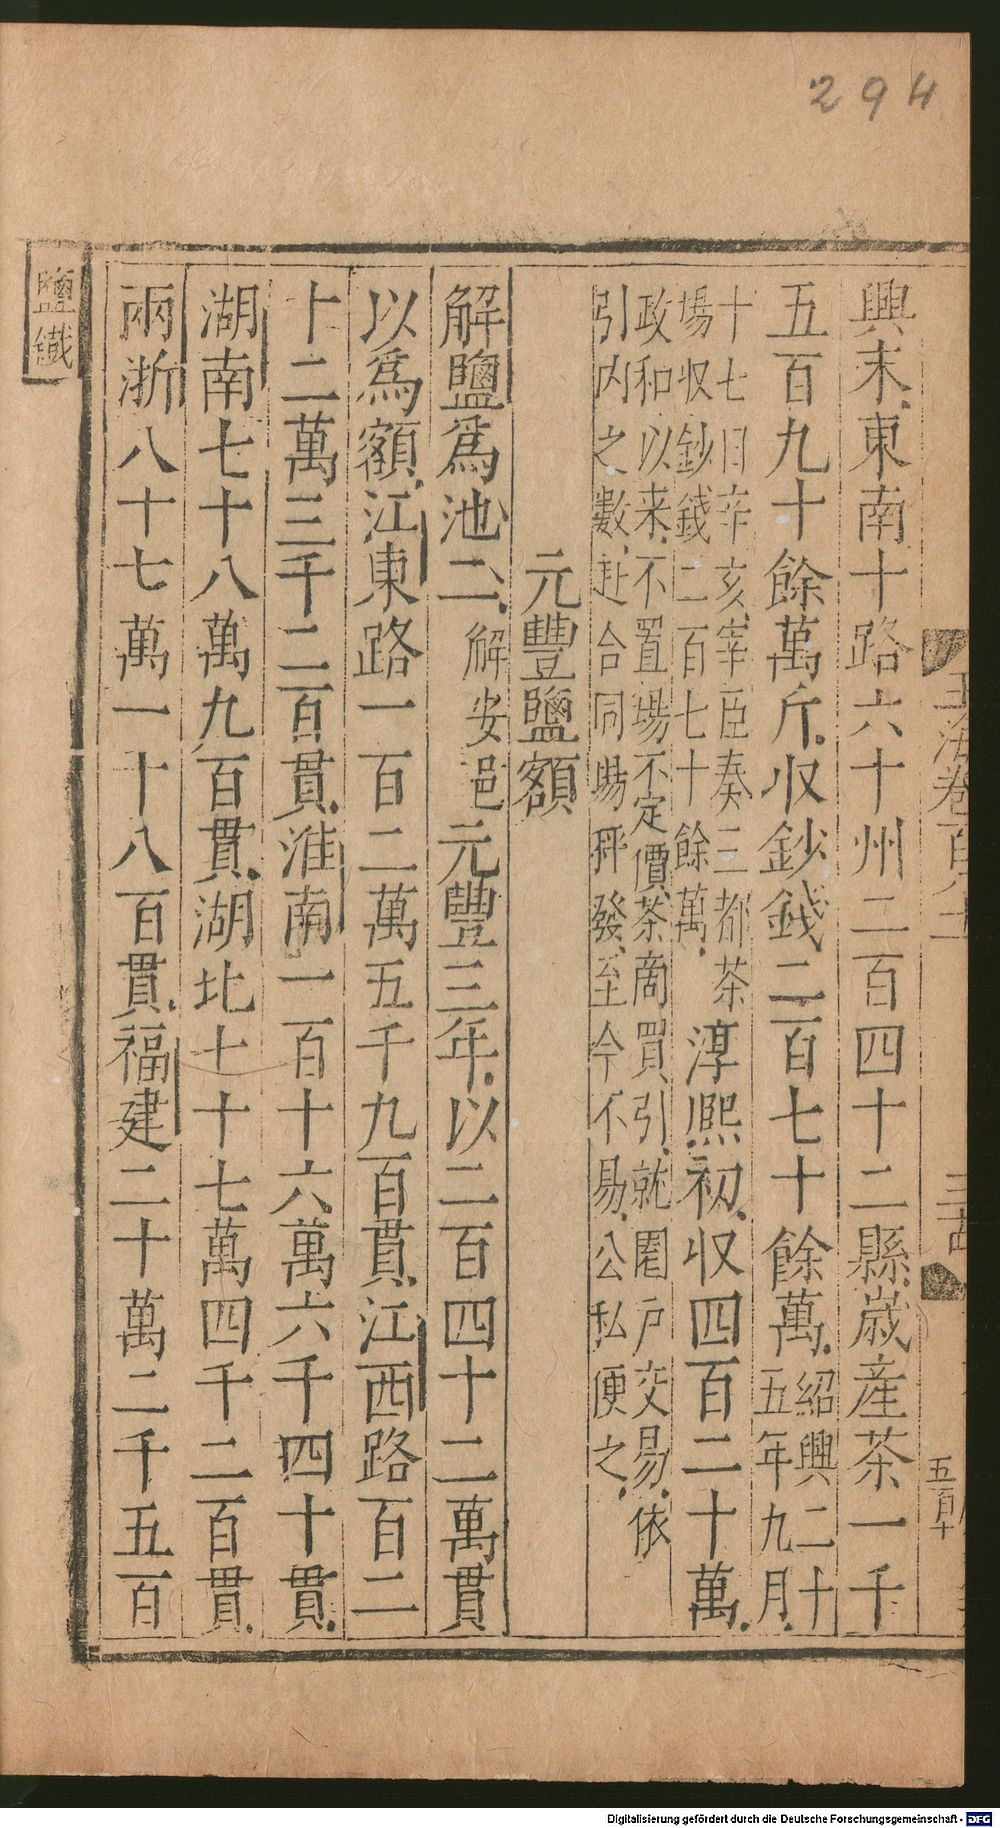 294
興末東南十路六十州二百四十二縣歲產茶一千
五百九十餘萬斤收鈔錢二百七十餘萬紹興二十
五年九月
十七日辛亥宰臣奏三都茶
場收鈔錢二百七十餘萬淳熙初收四百二十萬
政和以来不置場不定價茶商買引就園户交易依
引内之數赴合同場秤發至今不易公私便之
元豐鹽額
解鹽爲池二解安邑元豐三年以二百四十二萬貫
以爲額江東路一百二萬五千九百貫江西路百二
十二萬三千二百貫淮南一百十六萬六千四十貫
湖南七十八萬九百貫湖北七十七萬四千二百貫
兩浙八十七萬一十八百貫福建二十萬二千五百
鹽鐵
五百十
Digitalisierung gefördert durch die Deutsche Forschungsgemeinschaft - DFG